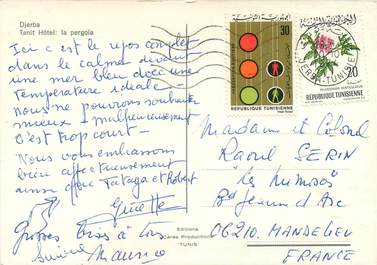 Djerba
Tanit Hôtel: la pergola
Ici c'est le repos complet
dans le calme devant
une mer bleu avec une
température idéale
Nous ne pouvons souhaiter
mieux - malheureusement
c'est trop court -
Nous vous embrassons
bien affectueusement
ainsi que Tataga et Robert
Ginette
Grosses bises à tous
Maurice
Editions
Carès Productions
TUNIS
30
REPUBLIQUE TUNISIENNE
20
REPUBLIQUE TUNISIENNE
DJERBA-TUNISIE
Madame et Colonel
Raoul SERIN
"Les Mimosas"
Bd Jeanne d'Arc
06210. MANDELIEU
FRANCE